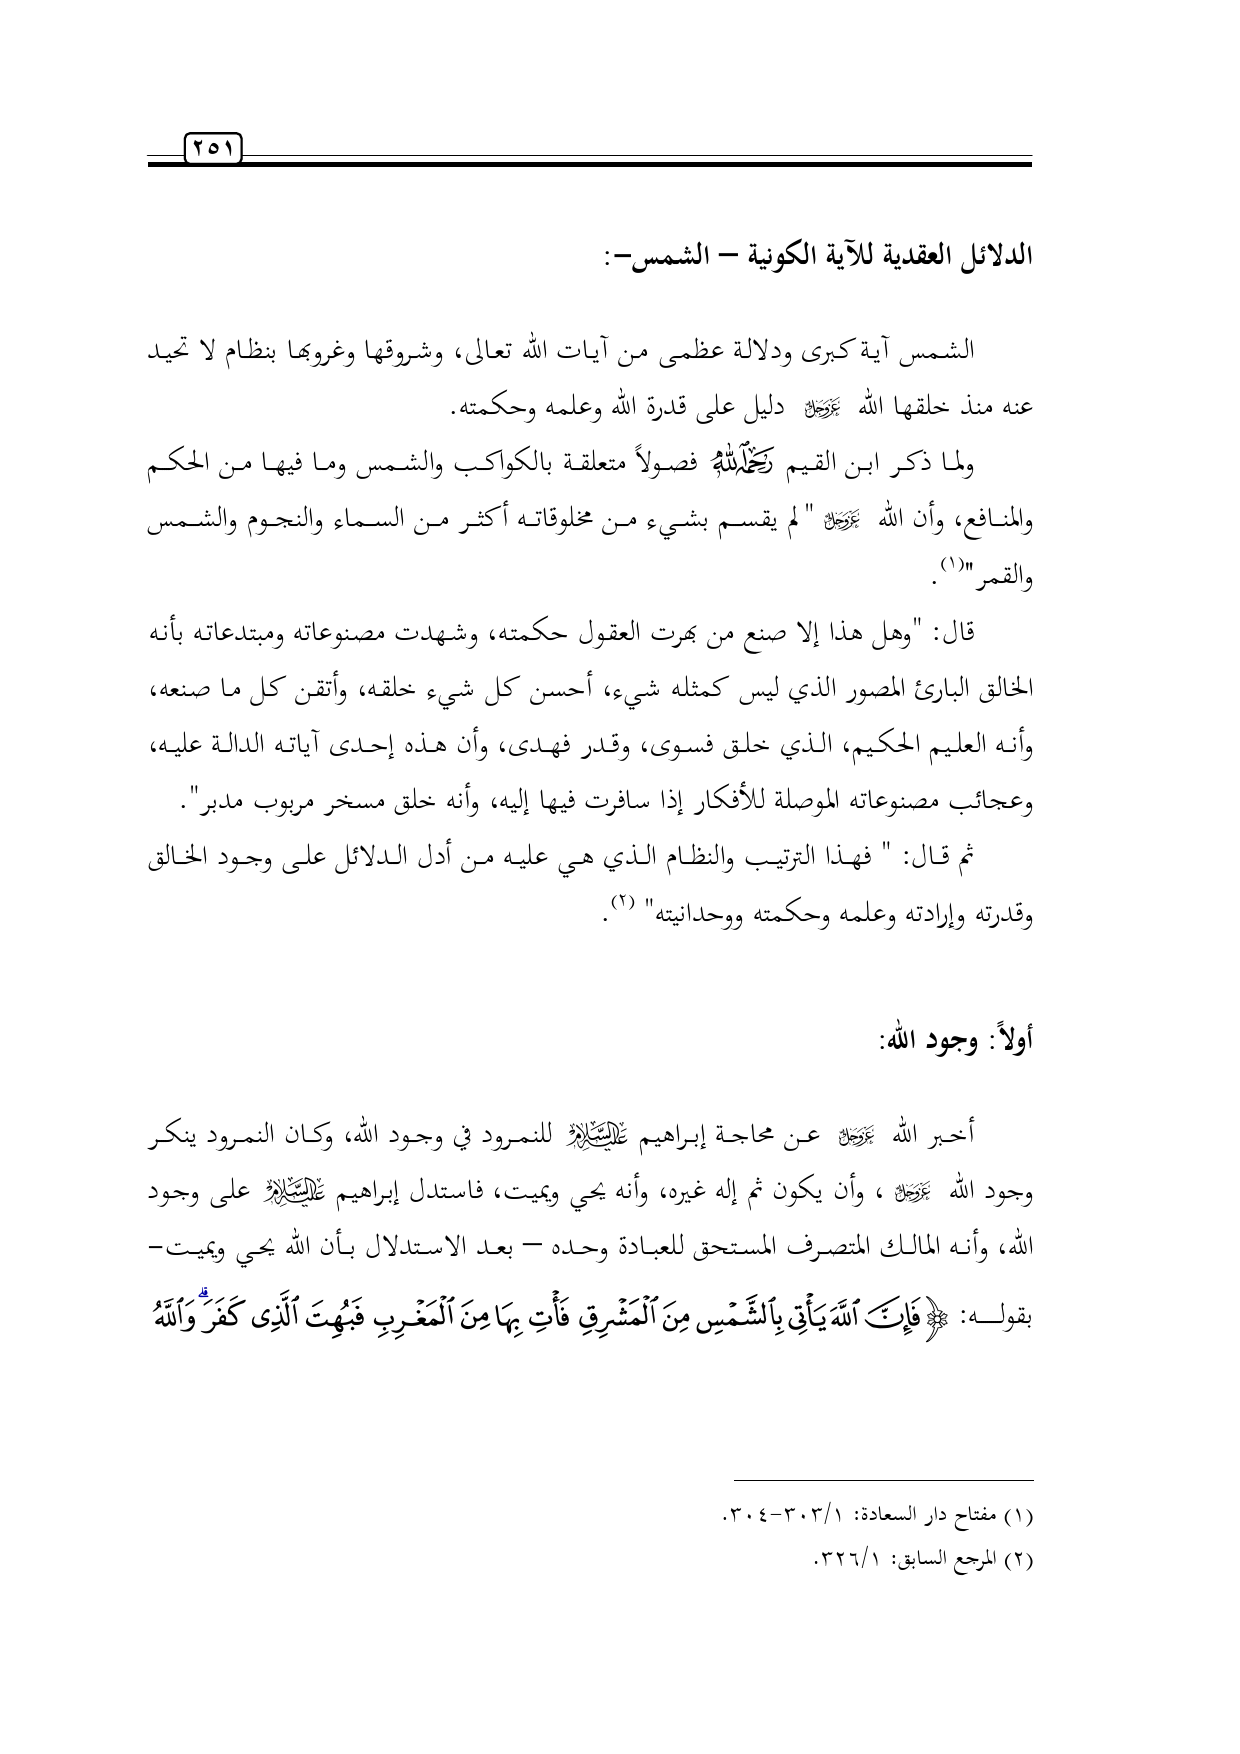 ٢٥١
الدلائل العقدية للآية الكونية – الشمس–:
الشمس آية كبرى ودلالة عظمى من آيات الله تعالى، وشروقها وغروبها بنظام لا تحيد
عنه منذ خلقها الله عز وجل دليل على قدرة الله وعلمه وحكمته.
ولما ذكر ابن القيم رحمه الله فصولاً متعلقة بالكواكب والشمس وما فيها من الحكم
والمنافع، وأن الله عز وجل " لم يقسم بشيء من مخلوقاته أكثر من السماء والنجوم والشمس
والقمر"(١).
قال: "وهل هذا إلا صنع من بهرت العقول حكمته، وشهدت مصنوعاته ومبتدعاته بأنه
الخالق البارئ المصور الذي ليس كمثله شيء، أحسن كل شيء خلقه، وأتقن كل ما صنعه،
وأنه العليم الحكيم، الذي خلق فسوى، وقدر فهدى، وأن هذه إحدى آياته الدالة عليه،
وعجائب مصنوعاته الموصلة للأفكار إذا سافرت فيها إليه، وأنه خلق مسخر مربوب مدبر".
ثم قال: " فهذا الترتيب والنظام الذي هي عليه من أدل الدلائل على وجود الخالق
وقدرته وإرادته وعلمه وحكمته ووحدانيته" (٢).
أولاً: وجود الله:
أخبر الله عز وجل عن محاجة إبراهيم عليه السلام للنمرود في وجود الله، وكان النمرود ينكر
وجود الله عز وجل ، وأن يكون ثم إله غيره، وأنه يحي ويميت، فاستدل إبراهيم عليه السلام على وجود
الله، وأنه المالك المتصرف المستحق للعبادة وحده – بعد الاستدلال بأن الله يحي ويميت–
بقوله: ﴿ فَإِنَّ ٱللَّهَ يَأْتِى بِٱلشَّمْسِ مِنَ ٱلْمَشْرِقِ فَأْتِ بِهَا مِنَ ٱلْمَغْرِبِ فَبُهِتَ ٱلَّذِى كَفَرَ ۗ وَٱللَّهُ
(١) مفتاح دار السعادة: ٣٠٣/١–٣٠٤.
(٢) المرجع السابق: ٣٢٦/١.